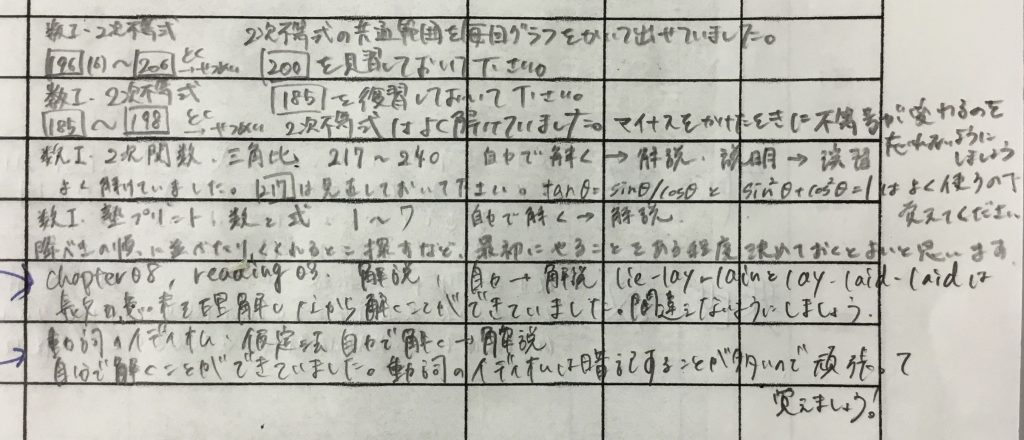 数I・2次不等式 2次不等式の共通範囲を毎回グラフをかいて出せていました。
196(6)〜206 とく→せつめい 200を見直しておいて下さい。
数I・2次不等式 185を復習しておいて下さい。
185〜198 とく→せつめい 2次不等式はよく解けていました。マイナスをかけたときに不等号が変わるのを
忘れないようにしましょう
数I・2次関数・三角比、217〜240 自力で解く→解説・説明→演習
よく解けていました。217は見直しておいて下さい。tanθ=sinθ/cosθと sin²θ+cos²θ=1はよく使うので
覚えてください
数I・塾プリント・数と式・1〜7 自力で解く→解説
降べきの順に並べたり、くくれるとこ探すなど、最初にやることをある程度決めておくとよいと思います。
chapter08, reading 03. 解説 自力→解説 lie-lay-lainとlay-laid-laidは
長文の意味を理解しながら解くことができていました。間違えないようにしましょう。
動詞のイディオム・仮定法 自力で解く→解説
自分で解くことができていました。動詞のイディオムは暗記することが多いので頑張って
覚えましょう!